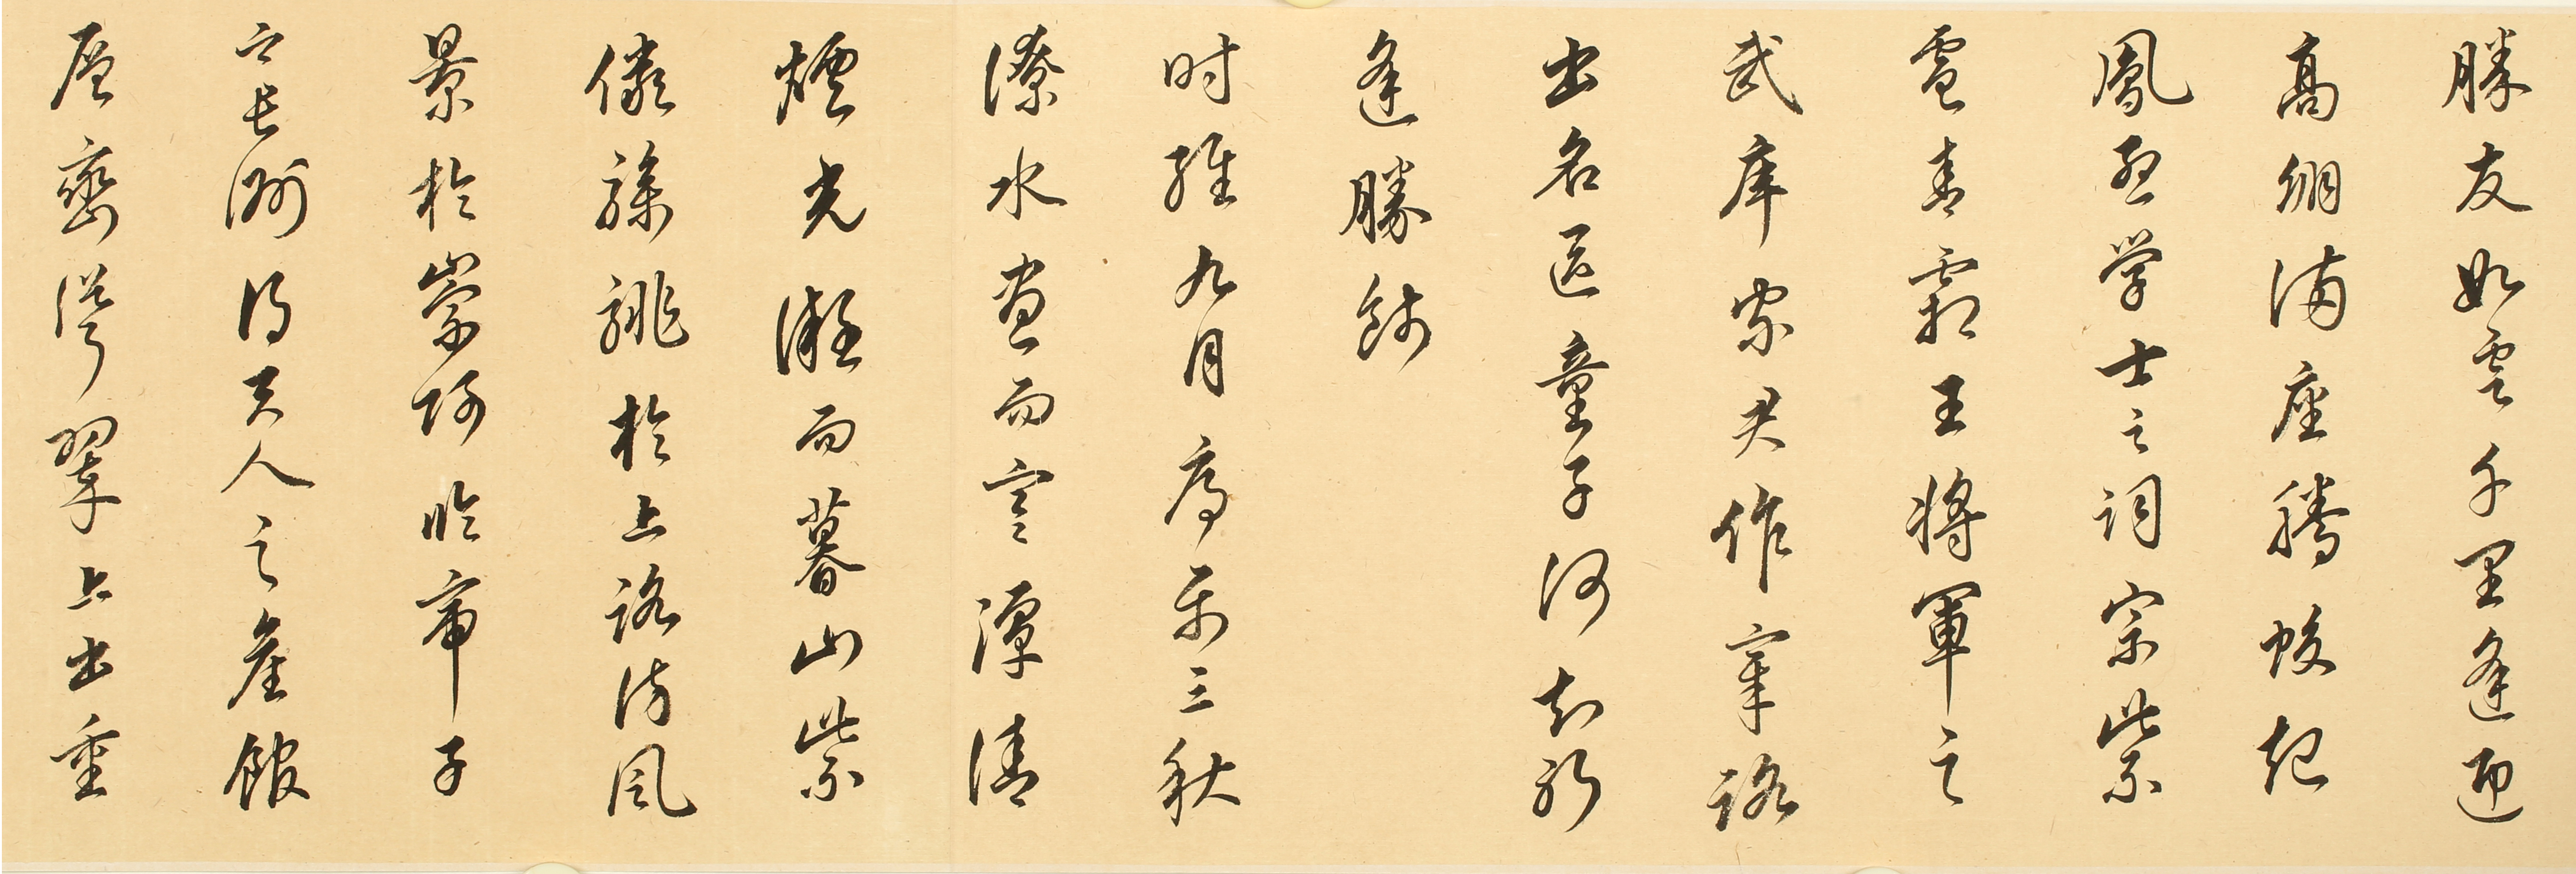 勝友如雲千里逢迎
高朋滿座騰蛟起
鳳孟學士之詞宗紫
電青霜王將軍之
武庫家君作宰路
出名區童子何知躬
逢勝餞
时維九月序屬三秋
潦水盡而寒潭清
煙光凝而暮山紫
儼驂騑於上路訪風
景於崇阿臨帝子
之長洲得天人之舊館
層巒聳翠上出重